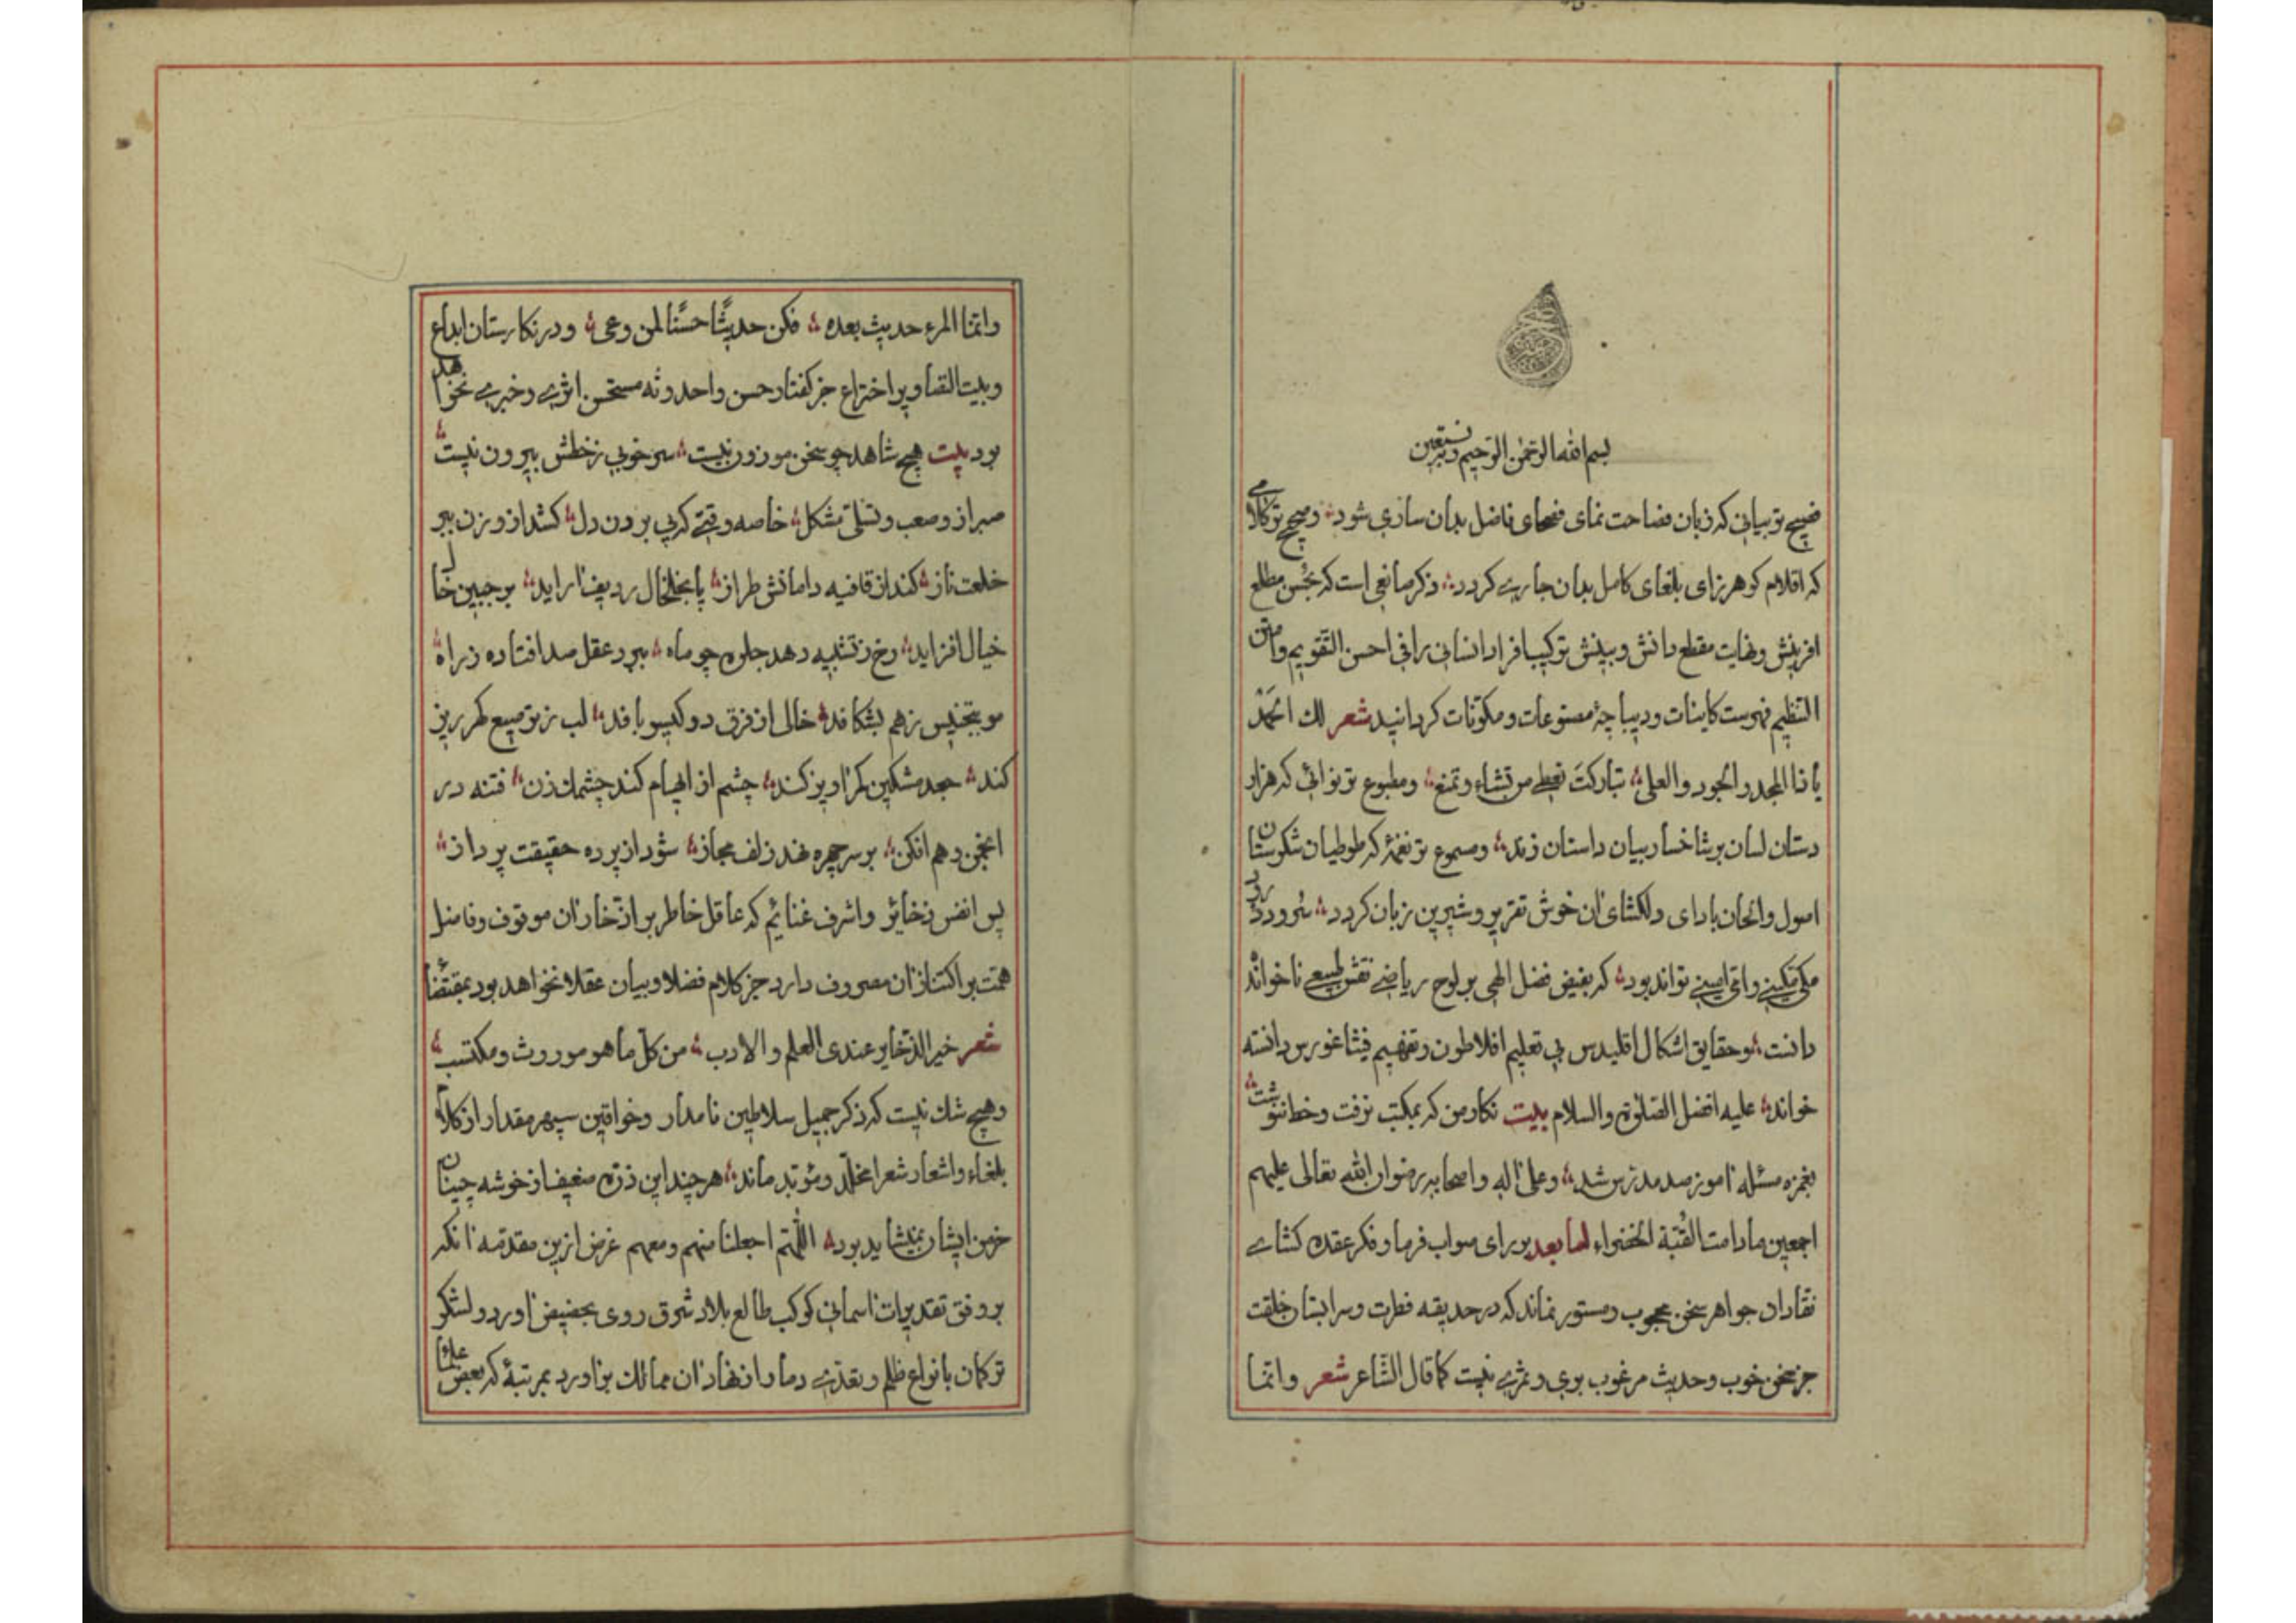 بسم الله الرحمن الرحيم وبه نستعين
فصیح تر بیانی که زبان فصاحت نمای فصحای فاضل بدان ساری شود و صحیح تر کلامی
که اقلام کوهر زای بلغای کامل بدان جاری کردد ذکر صانعی است که بحسن مطلع
افرینش و نهایت مقطع دانش و بینش ترکیب افراد انسانی را فی احسن التقویم وامتن
التنظیم فهرست کاینات و دیباجهٔ مصنوعات و مکونات کردانید شعر لك الحمد
یا ذا المجد والجود والعلی تبارکت تعطی من تشاء وتمنع ومطبوع تر نوائی که هزار
دستان لسان بر شاخسار بیان داستان زند ومسموع تر نغمهٔ که طوطیان شکرستان
اصول والحان بادای دلکشای ان خوش تقریر و شیرین زبان کردد سرود درود
مکی مکینی و امی امینی تواند بود که بفیض فضل الهی بر لوح ریاضی نقش طبیعی ناخوانده
دانست وحقایق اشکال اقلیدس بی تعلیم افلاطون وتفهیم فیثاغورس دانسته
خواند علیه افضل الصلوة والسلام بیت نکار من که بمکتب نرفت وخط ننوشت
بغمزه مسئله اموز صد مدرس شد وعلی اله واصحابه رضوان الله تعالی علیهم
اجمعین مادامت القبة الخضراء اما بعد بر رای صواب فرما و فکر عقده کشای
نقادان جواهر سخن محجوب ومستور نماند که در حدیقه فطرت وسرابستان خلقت
جز سخن خوب وحدیث مرغوب بوی وثمری نیست کما قال الشاعر شعر وانما
وانما المرء حدیث بعده فکن حدیثًا حسنًا لمن وعی ودر نکارستان ابداع
وبیت التصاویر اختراع جز کفتار حسن واحدوثه مستحسن اثری وخبری نخواهد
بود بیت هیچ شاهد چو سخن موزون نیست سر خوبی ز خطش بیرون نیست
صبر ازو صعب و تسلی مشکل خاصه وقتی که پی بردن دل کشد از وزن ببر
خلعت ناز کند از قافیه دامانش طراز پا بخلخال ردیف اراید بر جبین خال
خیال افزاید رخ ز تشبیه دهد جلوه چو ماه ببرد عقل صد افتاده ز راه
مو بتجنیس ز هم بشکافد خالی از فرق دو کیسو بافد لب ز ترصیع کهرریز
کند جعد مشکین کهراویز کند چشم از ابهام کند چشمك زن فتنه در
انجمن وهم افکن بر سر چهره نهد زلف مجاز شود از پرده حقیقت پرداز
پس انفس ذخائر واشرف غنائم که عاقل خاطر بر ادخار ان موقوف وفاضل
همت بر اکتناز ان مصروف دارد جز کلام فضلا وبیان عقلا نخواهد بود بمقتضای
شعر خیر الذخایر عندی العلم والادب من کل ما هو موروث ومکتسب
وهیچ شك نیست که ذکر جمیل سلاطین نامدار وخواقین سپهر مقدار از کلام
بلغاء واشعار شعرا مخلد ومؤبد ماند هر چند این ذره ضعیف از خوشه چینان
خرمن ایشان نمیشاید بود اللهم اجعلنا منهم ومعهم غرض ازین مقدمه انکه
بر وفق تقدیرات اسمانی کوکب طالع بلاد شرق روی بحضیض اورد ولشکر
ترکمان بانواع ظلم وتعدی دمار از نهاد ان ممالك براورد بمرتبهٔ که بعض علمای